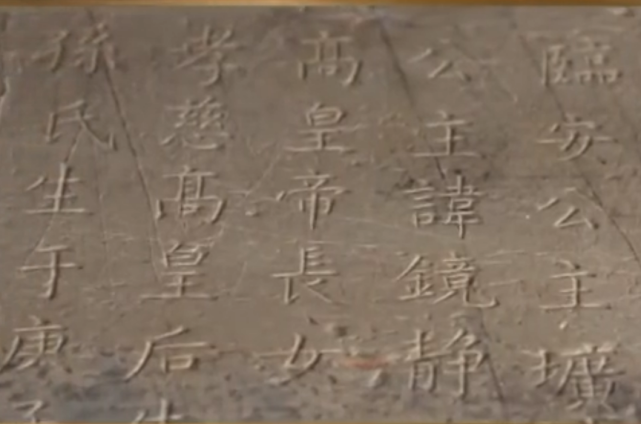 臨安公主壙
公主諱鏡静
髙皇帝長女
孝慈髙皇后
孫氏生于庚